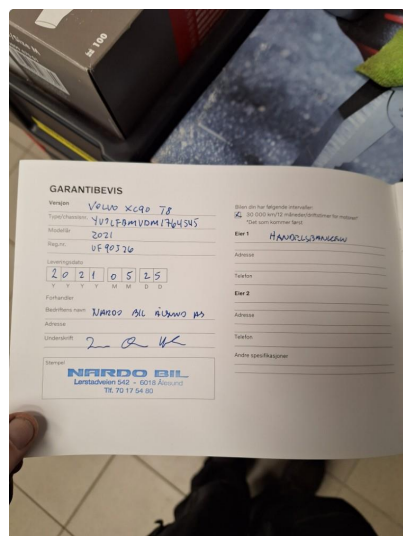 M 100
GARANTIBEVIS
Versjon Volvo XC90 T8
Type/chassisnr.
Modellår 2021
Reg.nr. UF90326
Leveringsdato
2021 05 25
Y Y Y Y M M D D
Forhandler
Bedriftens navn NARDO BIL ÅLESUND AS
Adresse
Underskrift
Stempel
NARDO BIL
Lerstadveien 542 - 6018 Ålesund
Tlf. 70 17 54 80
Bilen din har følgende intervaller:
30 000 km/12 måneder/driftstimer for motoren*
*Det som kommer først
Eier 1 HANDELSBANKEN
Adresse
Telefon
Eier 2
Adresse
Telefon
Andre spesifikasjoner